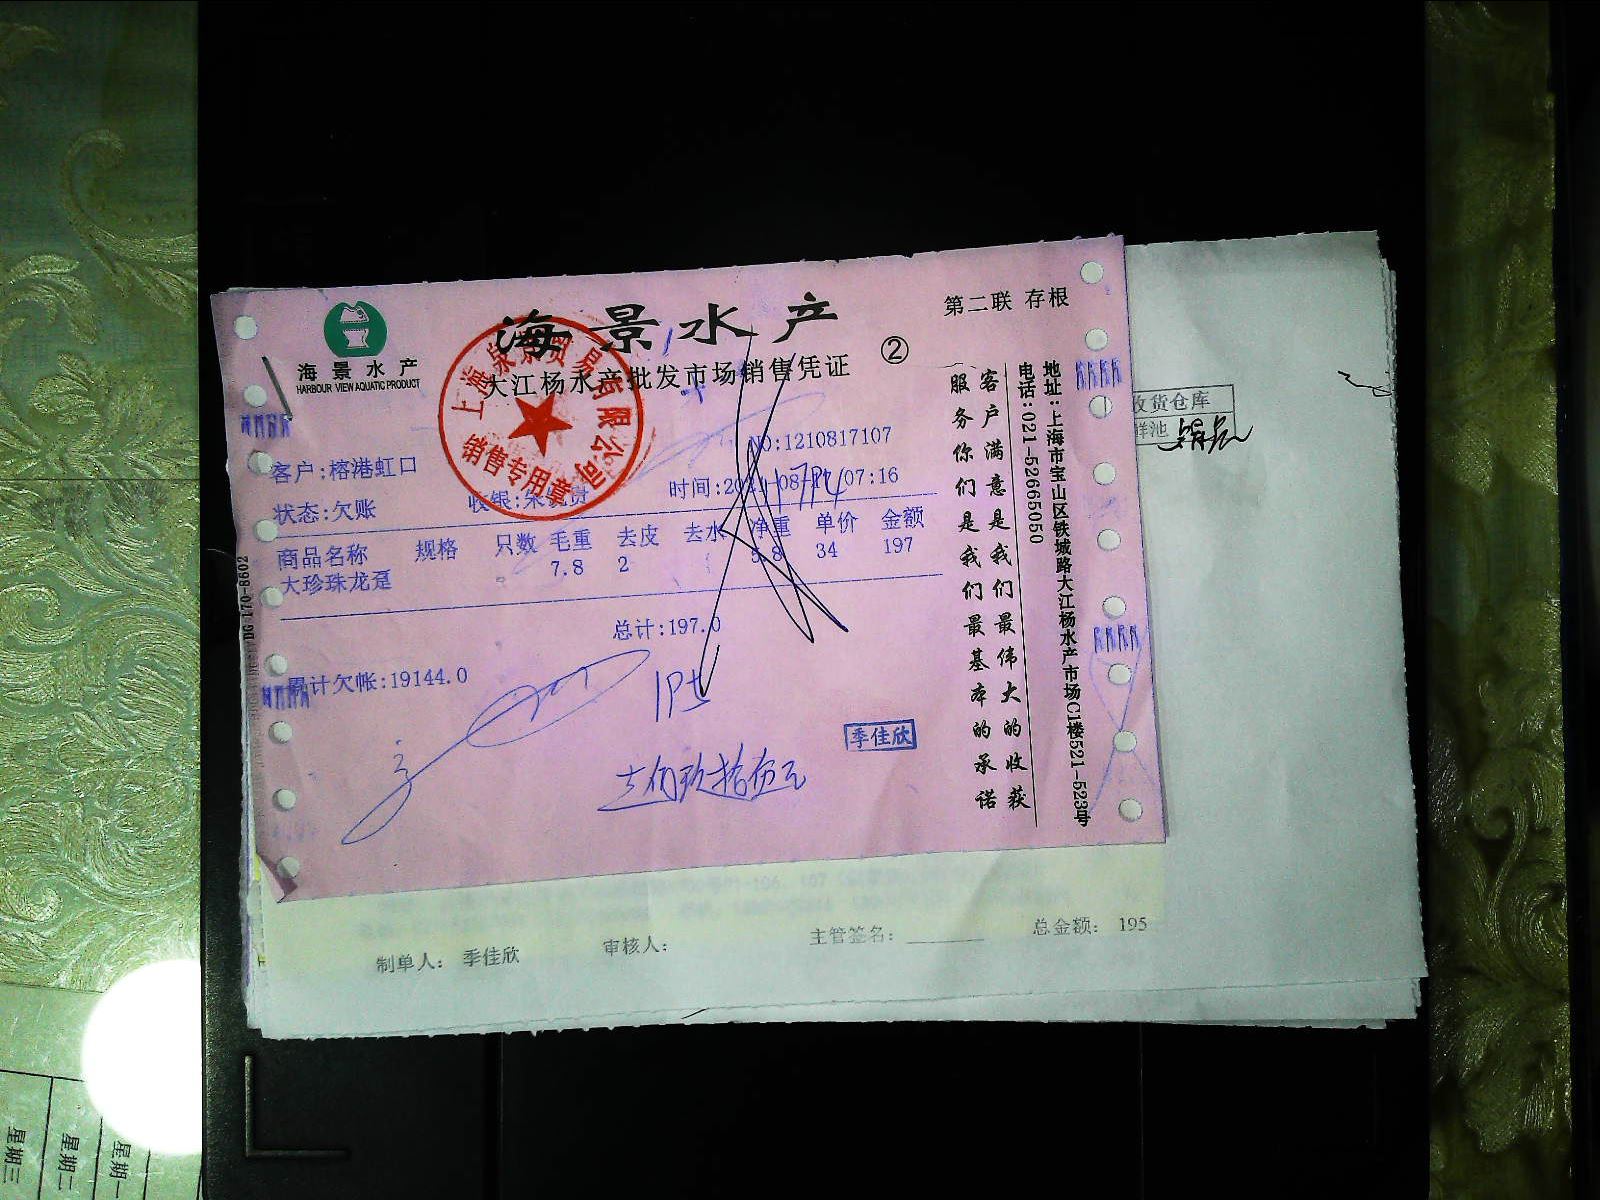 海景水产
第二联 存根
海景水产
HARBOUR VIEW AQUATIC PRODUCT
大江杨水产批发市场销售凭证
②
销售专用章
NO:1210817107
客户:榕港虹口
状态:欠账
收银:朱
时间:2021-08-17 07:16
商品名称 规格 只数 毛重 去皮 去水 净重 单价 金额
大珍珠龙趸 7.8 2 5.8 34 197
总计:197.0
累计欠帐:19144.0
季佳欣
客户满意是我们最伟大的收获
服务你们是我们最基本的承诺
地址:上海市宝山区铁城路大江杨水产市场C1楼521-523号
电话:021-52665050
DG L70-8602
收货仓库
鲜池
制单人: 季佳欣 审核人: 主管签名: 总金额: 195
星期一
星期二
星期三